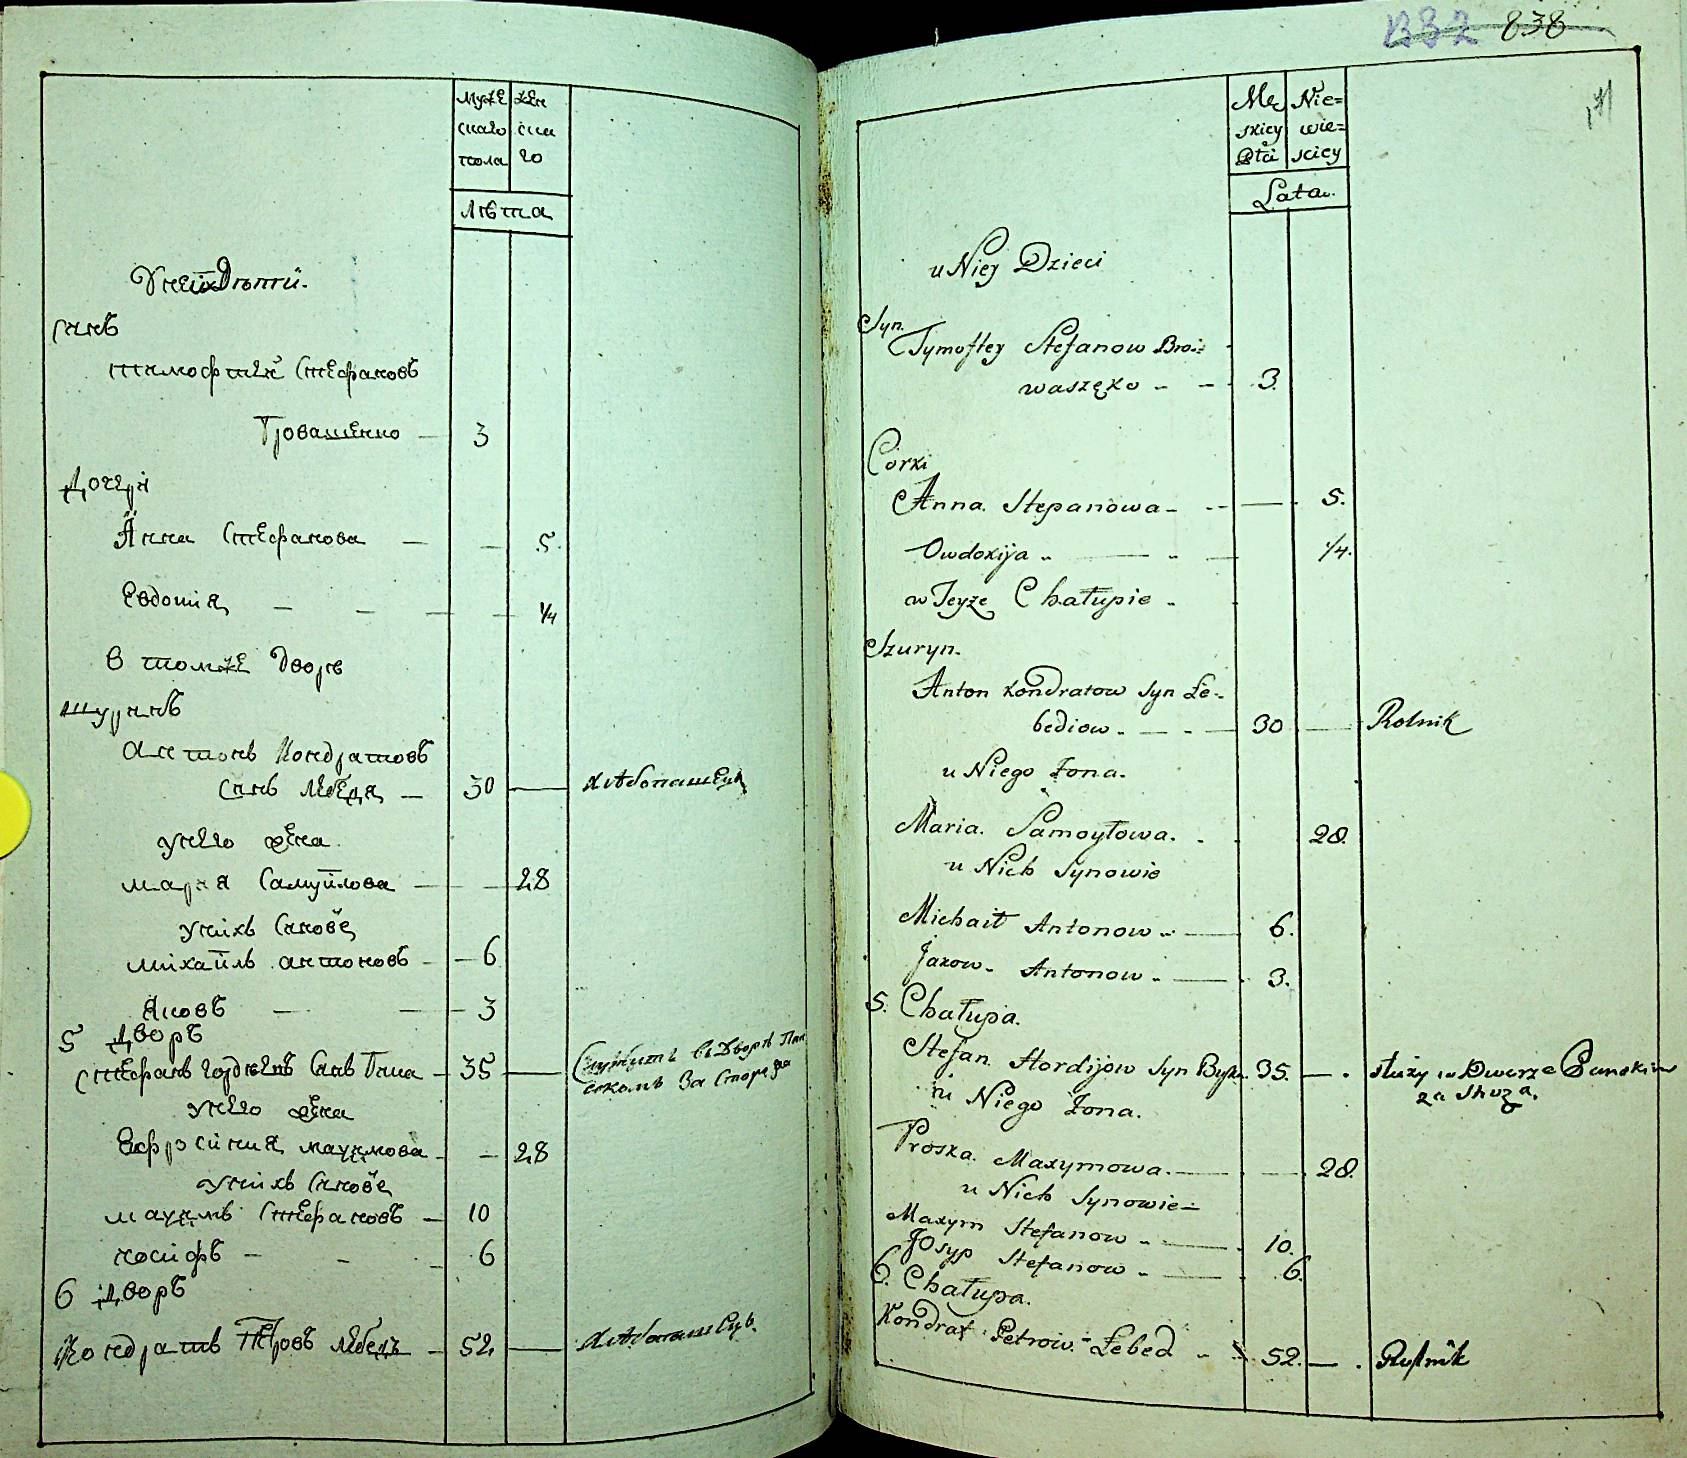 838
Муже жен
скаго ска
пола го
лѣта
У нейх Дѣтти.
Сынъ
тимофтей Стефановъ
3
Дочери
Анна Стефанова — — 5.
Евдокия — — — ¼
в томже Дворѣ
шуринъ
антонъ Кондратовъ
Сынъ Лебедя — 30 — хлѣбопашецъ
у него жена.
мария Самуйлова — — 28
у нихъ Сынове
михайлъ антоновъ — 6
Яковъ — — 3
5 Дворъ
Стефанъ Гордѣевъ Сынъ — 35 — Служитъ в Дворѣ Пан
скомъ За Сторожа
у него жена
Ефросиния Максимова — 28
у нихъ Сынове
максимъ Стефановъ — 10
иосифъ — — 6
6 Дворъ
Кондратъ Петровъ Лебедь — 52 — хлѣбопашецъ
Mę Nie=
skiey wie=
Płci sciey
Lata.
u Niey Dzieci
Syn.
Tymoftey Stefanow
waszęko - - 3.
Corki
Anna. Stepanowa - - — 5.
Owdokija - — - — ¼.
w Teyże Chałupie -
Szuryn.
Anton Kondratow syn Łe-
bediow - — - — 30 — Rolnik
u Niego Żona.
Maria. Samoyłowa. - 28.
u Nich Synowie
Michaił Antonow - — 6.
Jakow - Antonow - — 3.
5. Chałupa.
Stefan Hordijow syn 35. — . służy w Dworze Panskim
za Stroża.
u Niego Żona.
Proska. Maxymowa. — — 28.
u Nich Synowie=
Maxym Stefanow - — 10.
Josyp Stefanow - — 6.
6. Chałupa.
Kondrat Petrow - Łebed - 52. — . Rolnik